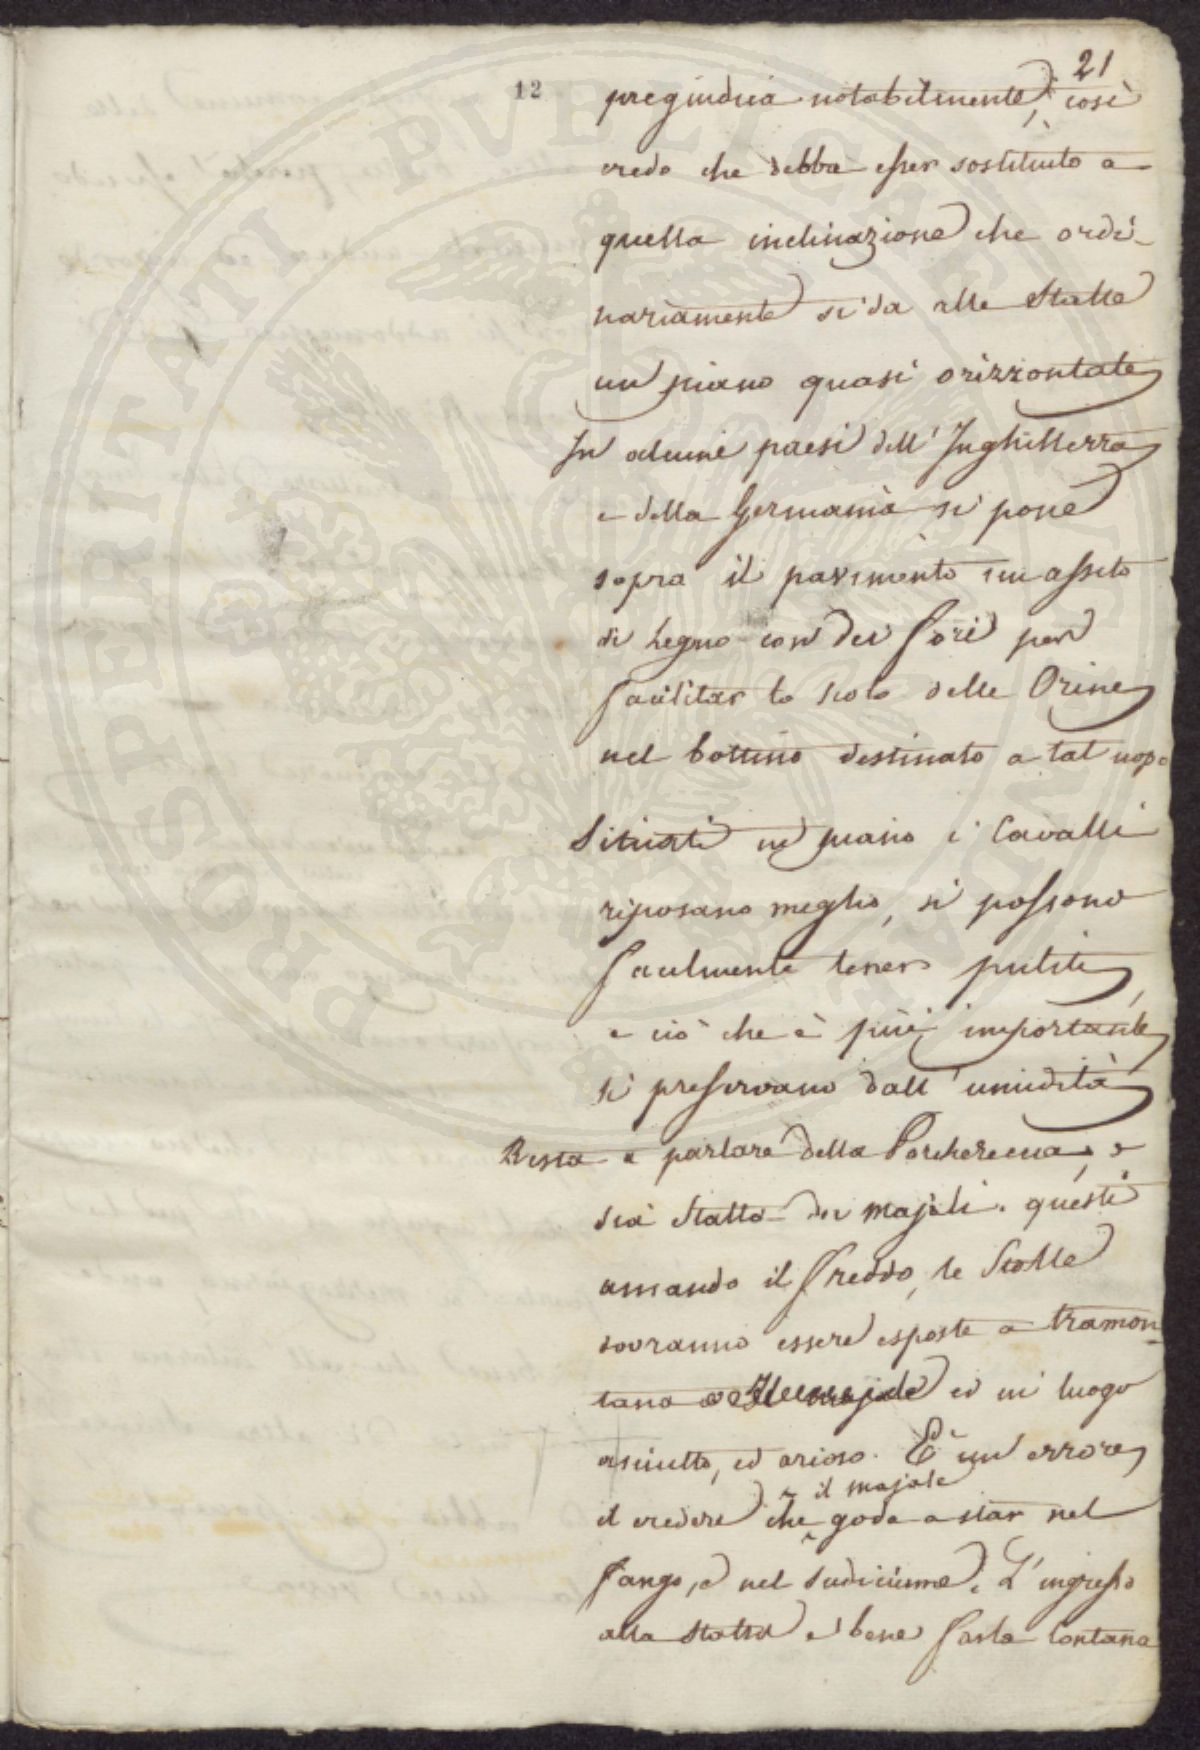 21
12
pregiudica notabilmente, così
credo che debba esser sostituito a
quella inclinazione che ordi-
nariamente si da alle Stalle
un piano quasi orizzontale
In alcuni paesi dell'Inghilterra
e della Germania si pone
sopra il pavimento un assito
di Legno con dei fori per
facilitar lo scolo delle Orine
nel bottino destinato a tal uopo
Situati in piano i Cavalli
riposano meglio, si possono
facilmente tener puliti,
e ciò che è più importante
si preservano dall'umidità
Resta a parlare della Porchereccia, o
sia Stalla dei majali. questi
amando il freddo, le Stalle
dovranno essere esposte a tramon-
tana ed in luogo
asciutto, ed arioso. È un errore
il majale
il credere che goda a star nel
fango, e nel sudiciume. L'ingresso
alla Stalla è bene farla lontana
PROSPERITATI PVBLICAE AVGENDAE